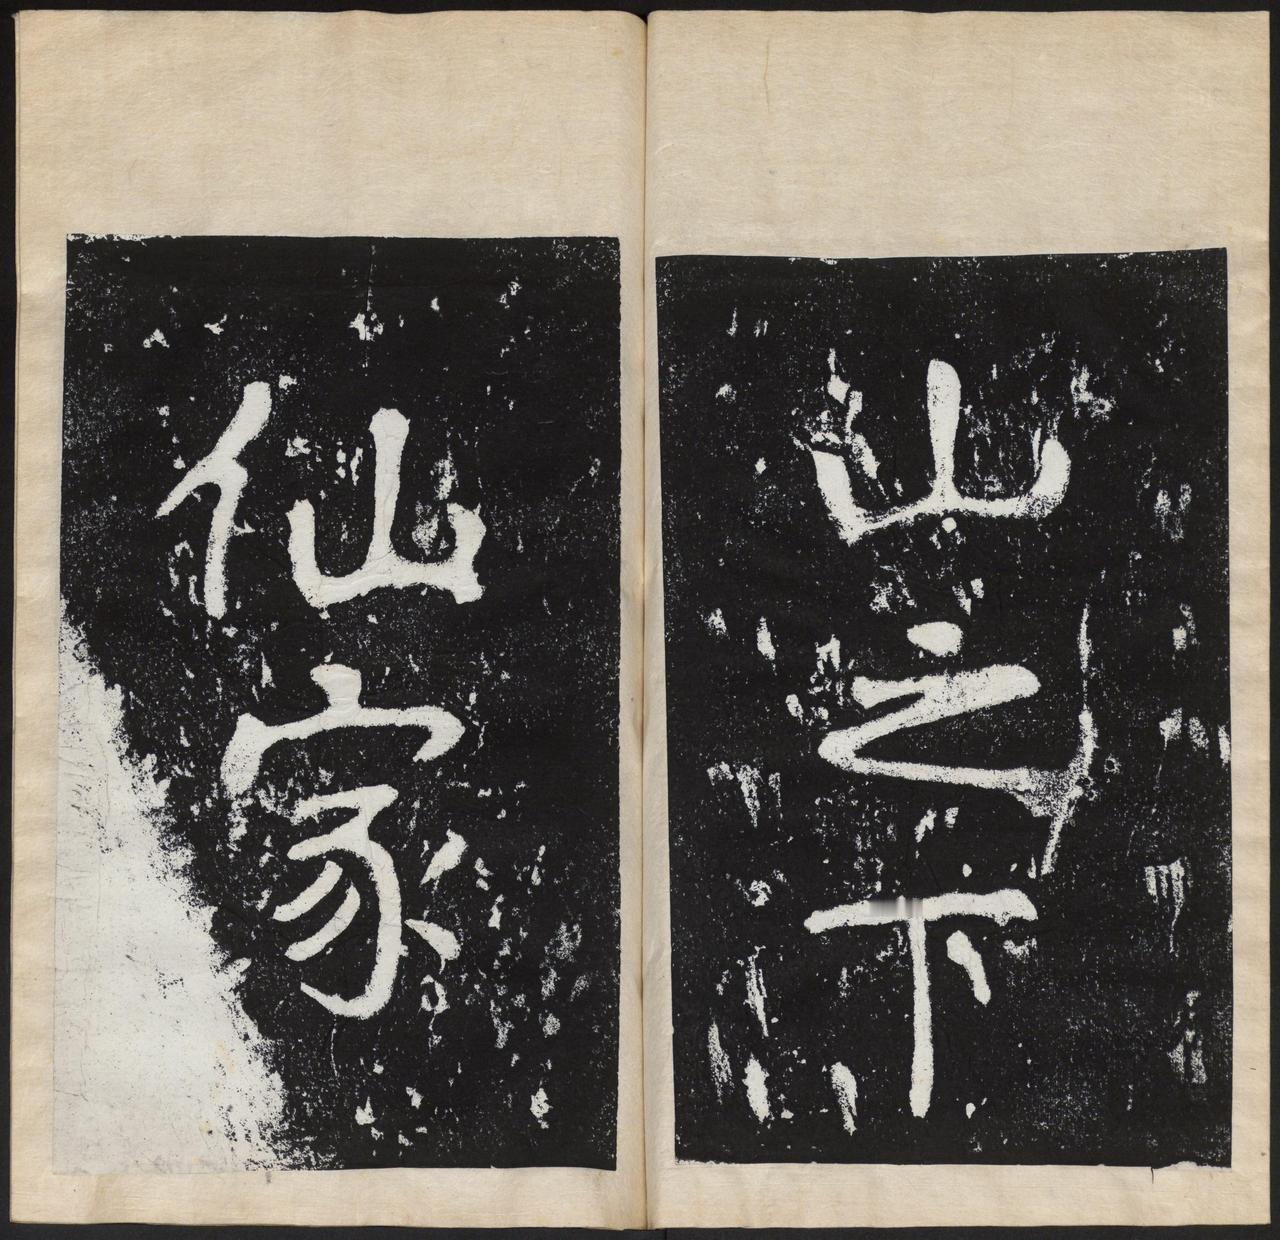 山之下
仙家